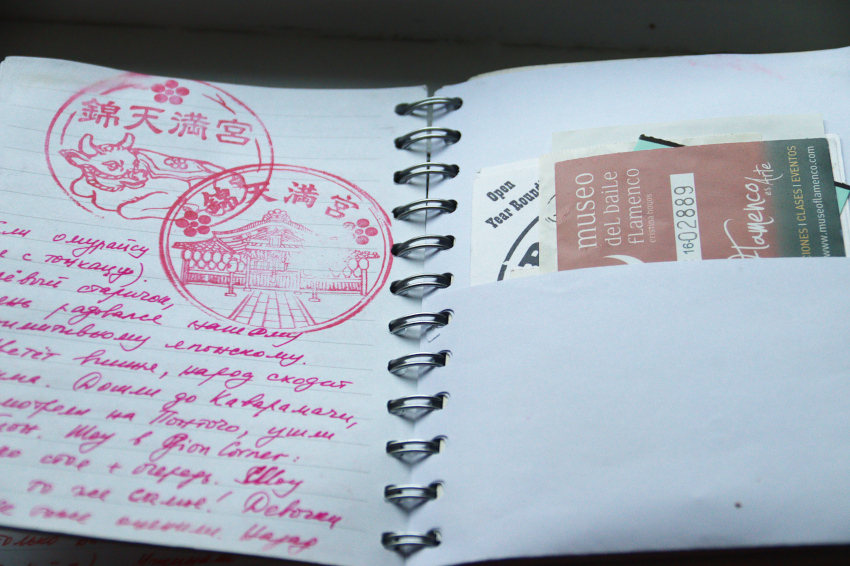 錦天満宮
錦天満宮
ели омурайсу
с тонкацу).
старичок,
радовался нашему
японскому.
вишня, народ сходит
Дошли до Каварамачи,
на Понточо, ушли
Шоу в Gion Corner:
+ очередь. Шоу
то же самое! Девочки
тоже оценили. Назад
Open
Year Round
museo
del baile
flamenco
cristina hoyos
16 02889
Flamenco
es Arte
CIONES I CLASES I EVENTOS
www.museoflamenco.com